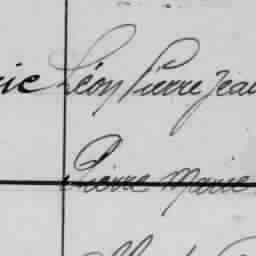 ric Léon Pierre Jean
Pierre Marie